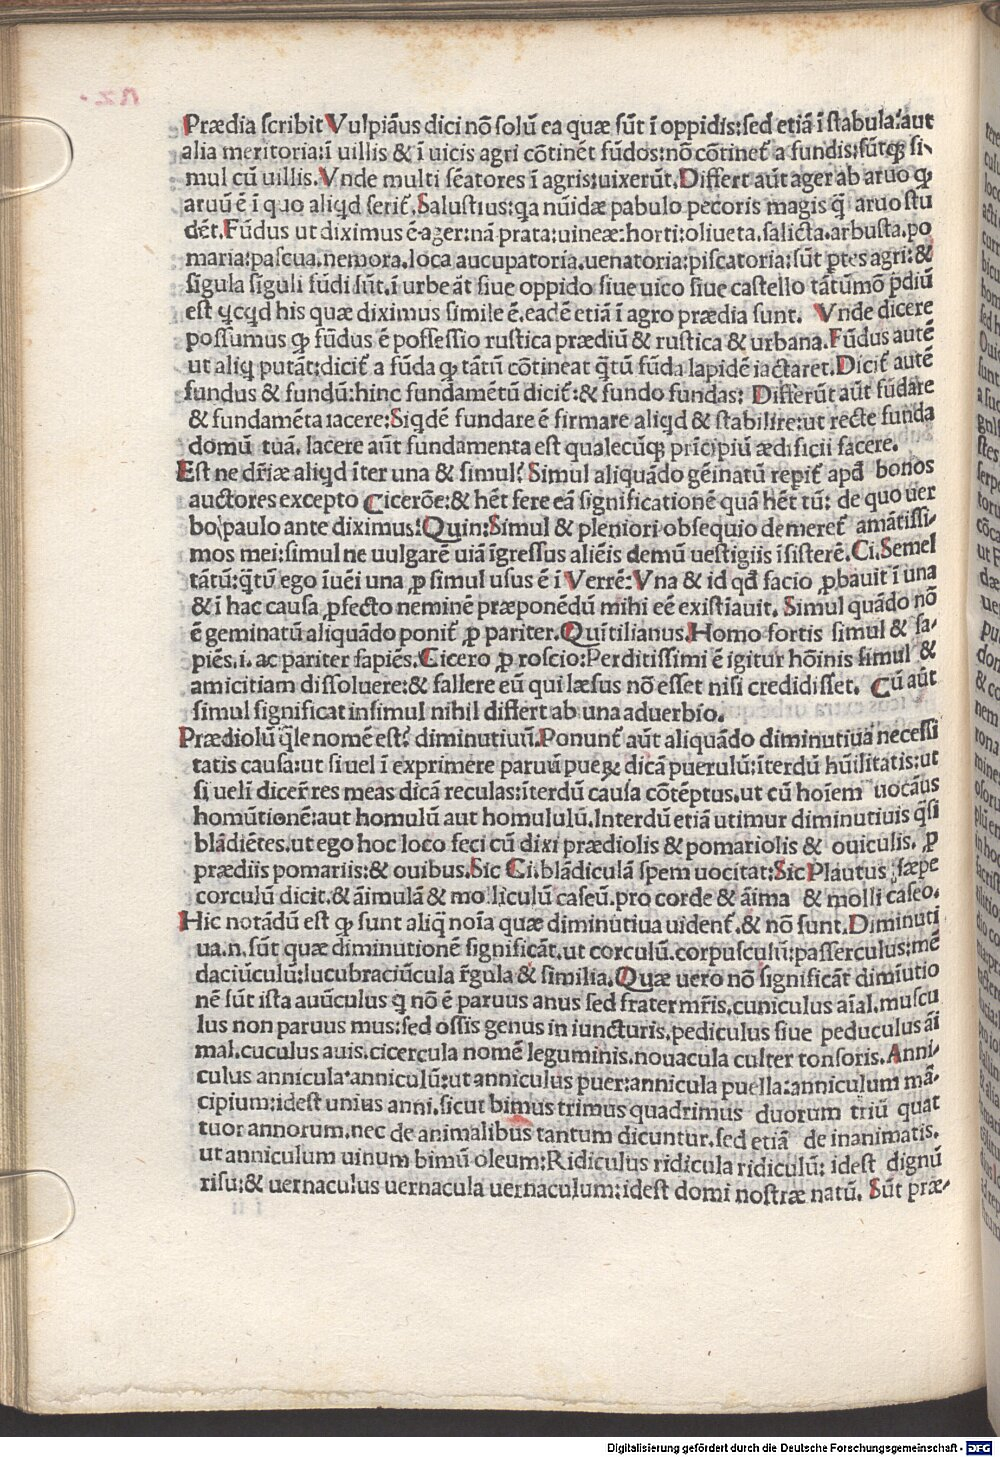 Prædia scribit Vulpiãus dici nõ solũ ea quæ sũt ĩ oppidis:sed etiã ĩ stabula:aut
alia meritoria:ĩ uillis & ĩ uicis agri cõtinẽt fũdos:nõ cõtinet̃ a fundis:sũtqꝫ si-
mul cũ uillis.Vnde multi sẽatores ĩ agris:uixerũt.Differt aũt ager ab aruo ꝙ
aruũ ẽ ĩ quo aliqd serit̃.Salustius:qa nũidæ pabulo pecoris magis q̃ aruo stu
dẽt.Fũdus ut diximus ẽ-ager:nã prata:uineæ:horti:oliueta.salicta.arbusta.po
maria:pascua.nemora.loca aucupatoria.uenatoria:piscatoria:sũt ꝑtes agri:&
sĩgula sĩguli fũdi sũt.ĩ urbe ãt siue oppido siue uico siue castello tãtũmõ p̃diũ
est qcqd his quæ diximus simile ẽ.eadẽ etiã ĩ agro prædia sunt. Vnde dicere
possumus ꝙ fũdus ẽ possessio rustica prædiũ & rustica & urbana.Fũdus autẽ
ut aliq putãt:dicit̃ a fũda ꝙ tãtũ cõtineat q̃tũ fũda lapidẽ iactaret.Dicit̃ autẽ
fundus & fundũ:hinc fundamẽtũ dicit̃:& fundo fundas: Differũt aũt fũdare
& fundamẽta iacere:Siqdẽ fundare ẽ firmare aliqd & stabilire:ut recte funda
domũ tuã. Iacere aũt fundamenta est qualecũqꝫ prĩcipiũ ædificii facere.
Est ne dr̃iæ aliqd ĩter una & simul? Simul aliquãdo gẽinatũ repit̃ apđ bonos
auctores excepto Cicerõe:& hẽt fere eã significationẽ quã hẽt tũ: de quo uer
bo paulo ante diximus:Quin:Simul & pleniori obsequio demeret̃ amãtissi-
mos mei:simul ne uulgarẽ uiã ĩgressus aliẽis demũ uestigiis ĩsisterẽ.Ci.Semel
tãtũ:q̃tũ ego ĩuẽi una ꝓ simul usus ẽ ĩ Verrẽ:Vna & id qđ facio ꝓbauit ĩ una
& ĩ hac causa ꝓfecto neminẽ præponẽdũ mihi eẽ existĩauit. Simul quãdo nõ
ẽ geminatũ aliquãdo ponit̃ ꝓ pariter.Quĩtilianus.Homo fortis simul & sa-
piẽs.i.ac pariter sapiẽs.Cicero ꝓ roscio:Perditissimi ẽ igitur hõinis simul &
amicitiam dissoluere:& fallere eũ qui læsus nõ esset nisi credidisset. Cũ aũt
simul significat insimul nihil differt ab una aduerbio.
Prædiolũ q̃le nomẽ est? diminutiuũ.Ponunt̃ aũt aliquãdo diminutiua necessi
tatis causa:ut si uel ĩ exprimere paruũ pueꝝ dicã puerulũ:ĩterdũ hũilitatis:ut
si uelĩ dicer̃ res meas dicã reculas:ĩterdũ causa cõtẽptus.ut cũ hoĩem uocãus
homũtionẽ:aut homulũ aut homululũ.Interdũ etiã utimur diminutiuis q̃si
blãdiẽtes.ut ego hoc loco feci cũ dixi prædiolis & pomariolis & ouiculis. ꝓ
prædiis pomariis:& ouibus.Sic Ci.blãdiculã spem uocitat:Sic Plautus sæpe
corculũ dicit.& ãimulã & molliculũ caseũ.pro corde & ãima & molli caseo.
Hic notãdũ est ꝙ sunt aliq̃ noĩa quæ diminutiua uident̃.& nõ sunt.Diminuti
ua.n.sũt quæ diminutionẽ significãt.ut corculũ.corpusculũ:passerculus:mẽ
daciũculũ:lucubraciũcula r̃gula & similia.Quæ uero nõ significãt dimĩutio
nẽ sũt ista auũculus q̃ nõ ẽ paruus anus sed frater mr̃is.cuniculus aĩal.muscu
lus non paruus mus:sed ossis genus in iuncturis.pediculus siue peduculus ãi
mal.cuculus auis.cicercula nomẽ leguminis.nouacula culter tonsoris.Anni-
culus annicula.anniculũ:ut anniculus puer:annicula puella:anniculum mã-
cipium:idest unius anni.sicut bimus trimus quadrimus duorum triũ quat
tuor annorum.nec de animalibus tantum dicuntur.sed etiã de inanimatis.
ut anniculum uinum bimũ oleum:Ridiculus ridicula ridiculũ: idest dignũ
risu:& uernaculus uernacula uernaculum:idest domi nostræ natũ. Sũt præ-
Digitalisierung gefördert durch die Deutsche Forschungsgemeinschaft - DFG